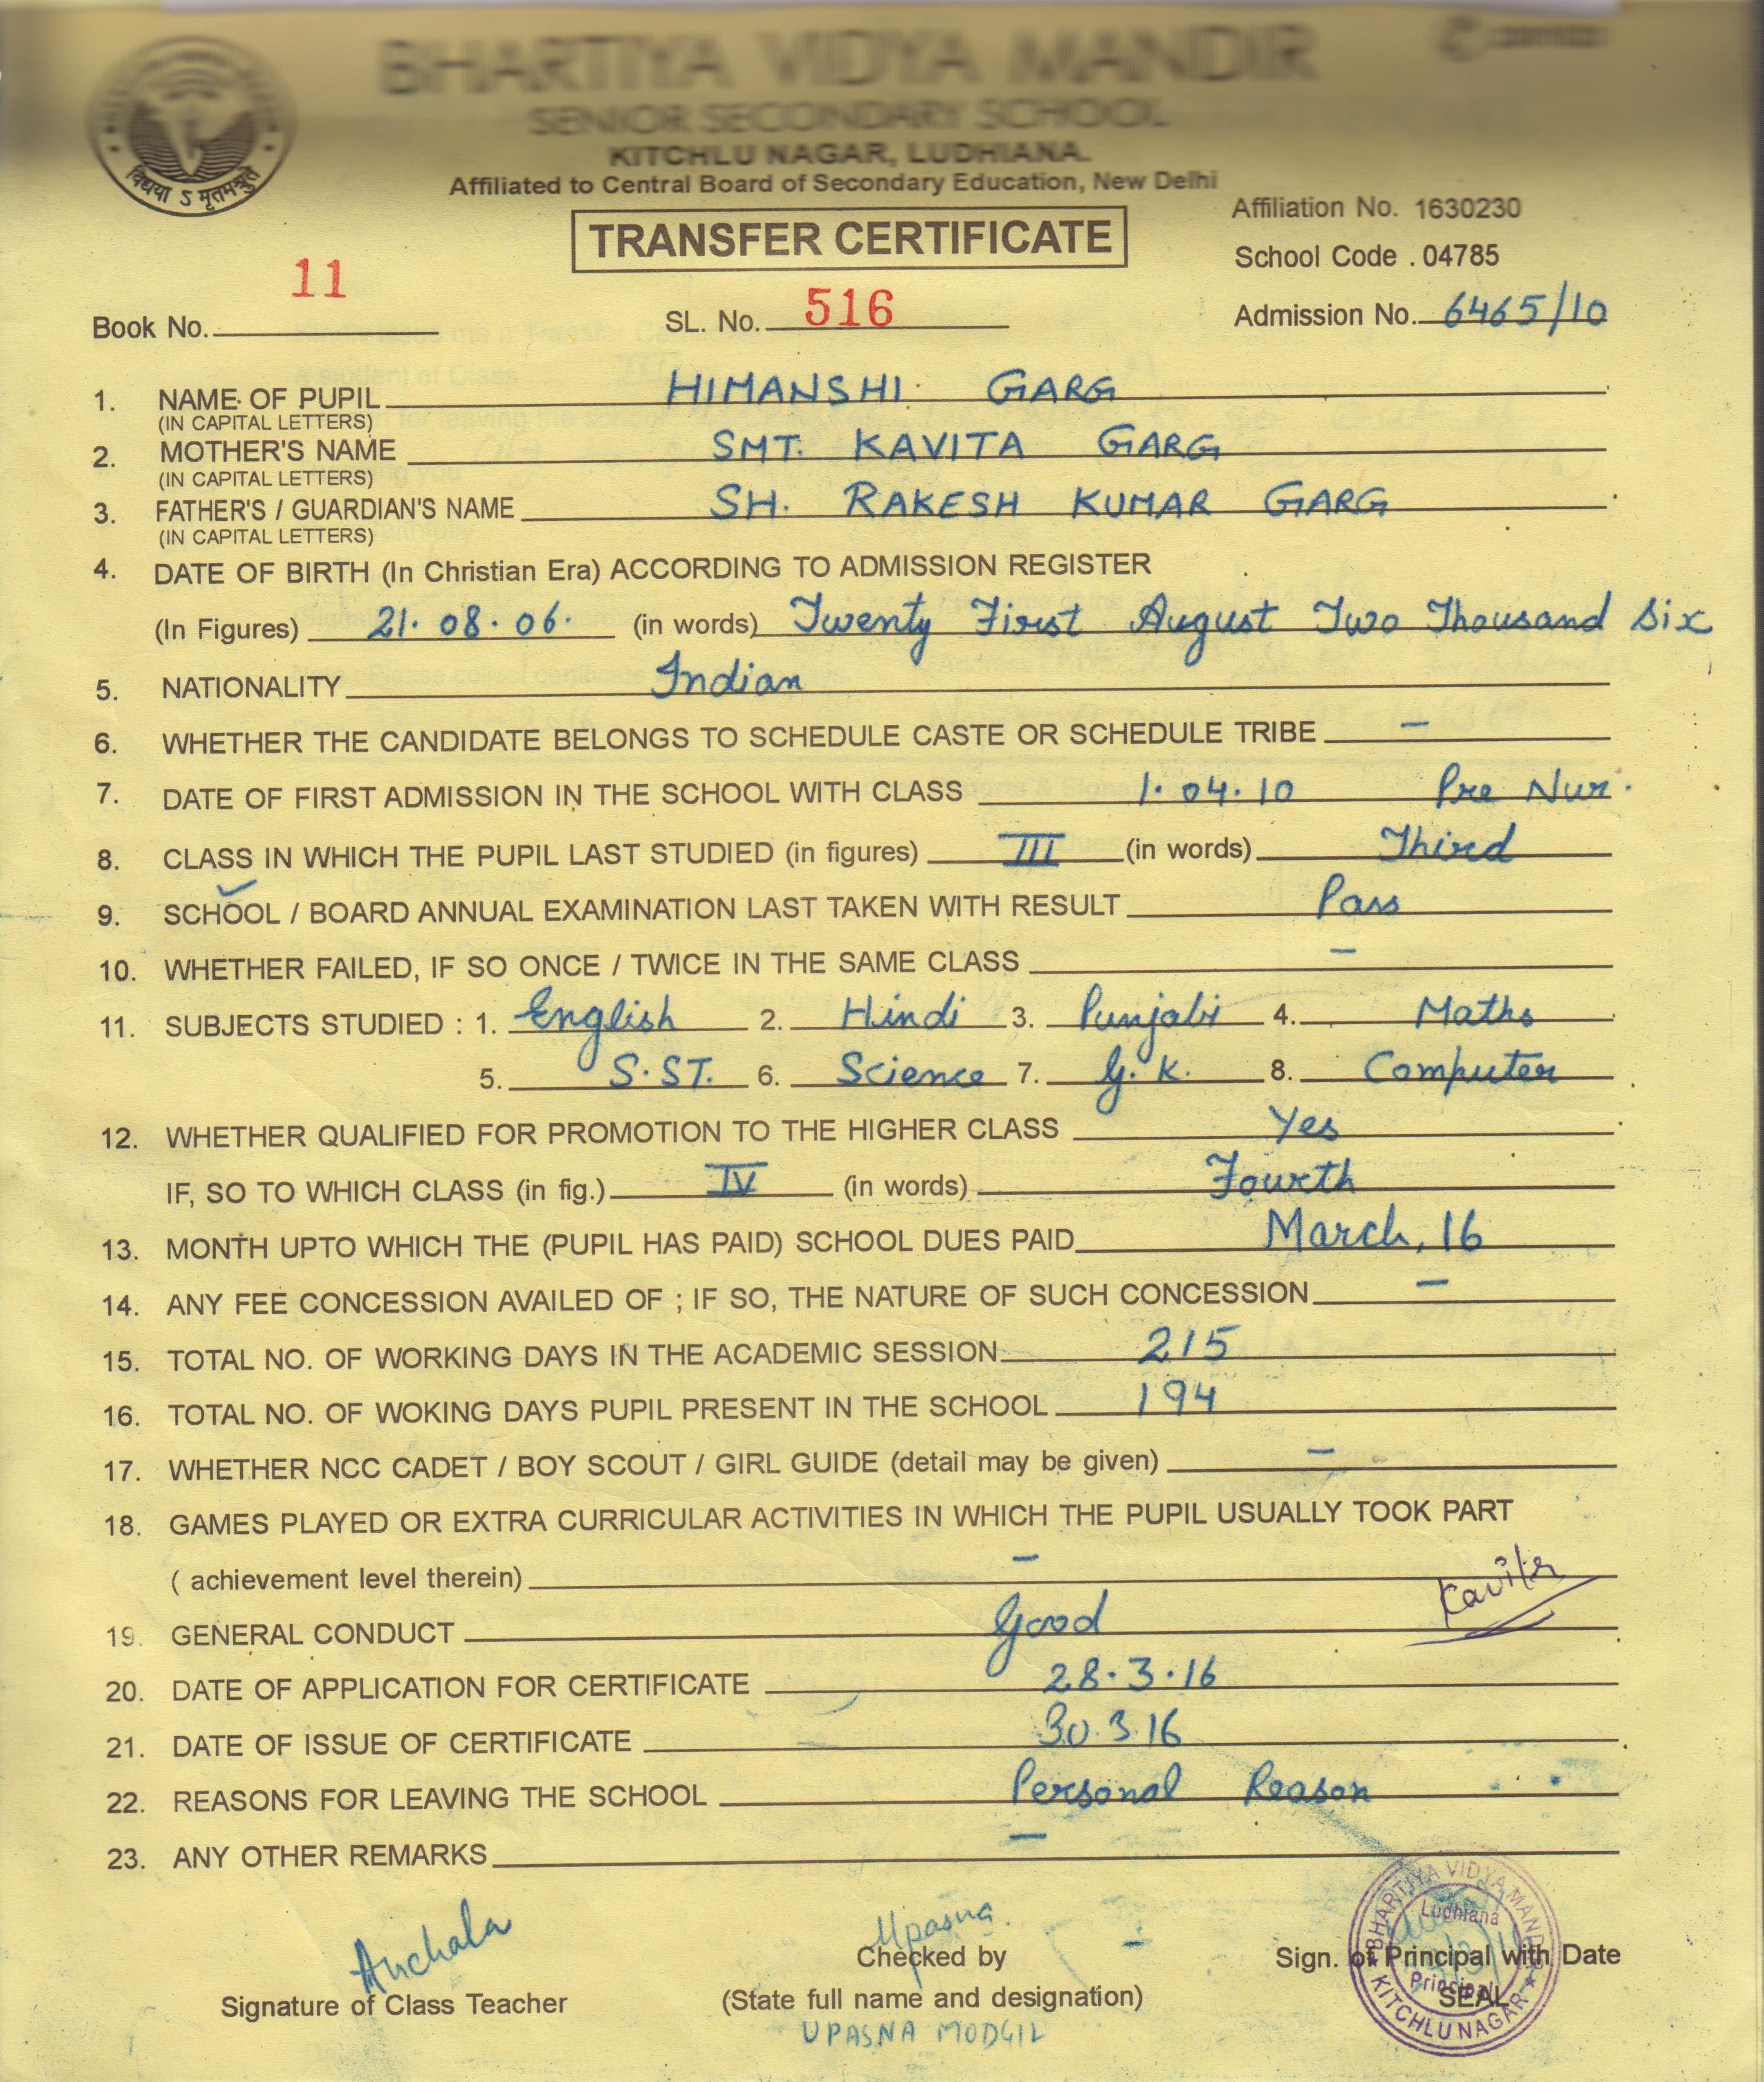 BHARTIYA VIDYA MANDIR
SENIOR SECONDARY SCHOOL
KITCHLU NAGAR, LUDHIANA.
Affiliated to Central Board of Secondary Education, New Delhi
विद्यया ऽ मृतमश्नुते
TRANSFER CERTIFICATE
Affiliation No. 1630230
School Code . 04785
Book No. 11 SL. No. 516 Admission No. 6465/10
1. NAME OF PUPIL HIMANSHI GARG
(IN CAPITAL LETTERS)
2. MOTHER'S NAME SMT. KAVITA GARG
(IN CAPITAL LETTERS)
3. FATHER'S / GUARDIAN'S NAME SH. RAKESH KUMAR GARG
(IN CAPITAL LETTERS)
4. DATE OF BIRTH (In Christian Era) ACCORDING TO ADMISSION REGISTER
(In Figures) 21. 08. 06. (in words) Twenty First August Two Thousand Six
5. NATIONALITY Indian
6. WHETHER THE CANDIDATE BELONGS TO SCHEDULE CASTE OR SCHEDULE TRIBE –
7. DATE OF FIRST ADMISSION IN THE SCHOOL WITH CLASS 1. 04. 10 Pre Nur.
8. CLASS IN WHICH THE PUPIL LAST STUDIED (in figures) III (in words) Third
9. SCHOOL / BOARD ANNUAL EXAMINATION LAST TAKEN WITH RESULT Pass
10. WHETHER FAILED, IF SO ONCE / TWICE IN THE SAME CLASS –
11. SUBJECTS STUDIED : 1. English 2. Hindi 3. Punjabi 4. Maths
5. S.ST. 6. Science 7. G.K. 8. Computer
12. WHETHER QUALIFIED FOR PROMOTION TO THE HIGHER CLASS Yes
IF, SO TO WHICH CLASS (in fig.) IV (in words) Fourth
13. MONTH UPTO WHICH THE (PUPIL HAS PAID) SCHOOL DUES PAID March, 16
14. ANY FEE CONCESSION AVAILED OF ; IF SO, THE NATURE OF SUCH CONCESSION –
15. TOTAL NO. OF WORKING DAYS IN THE ACADEMIC SESSION 215
16. TOTAL NO. OF WOKING DAYS PUPIL PRESENT IN THE SCHOOL 194
17. WHETHER NCC CADET / BOY SCOUT / GIRL GUIDE (detail may be given) –
18. GAMES PLAYED OR EXTRA CURRICULAR ACTIVITIES IN WHICH THE PUPIL USUALLY TOOK PART
( achievement level therein) –
Kavita
19. GENERAL CONDUCT Good
20. DATE OF APPLICATION FOR CERTIFICATE 28.3.16
21. DATE OF ISSUE OF CERTIFICATE 30.3.16
22. REASONS FOR LEAVING THE SCHOOL Personal Reason
23. ANY OTHER REMARKS –
Anchala
Signature of Class Teacher
Upasna.
Checked by –
(State full name and designation)
UPASNA MODGIL
Sign. of Principal with Date
SEAL
BHARTIYA VIDYA MANDIR
KITCHLU NAGAR
Ludhiana
Principal